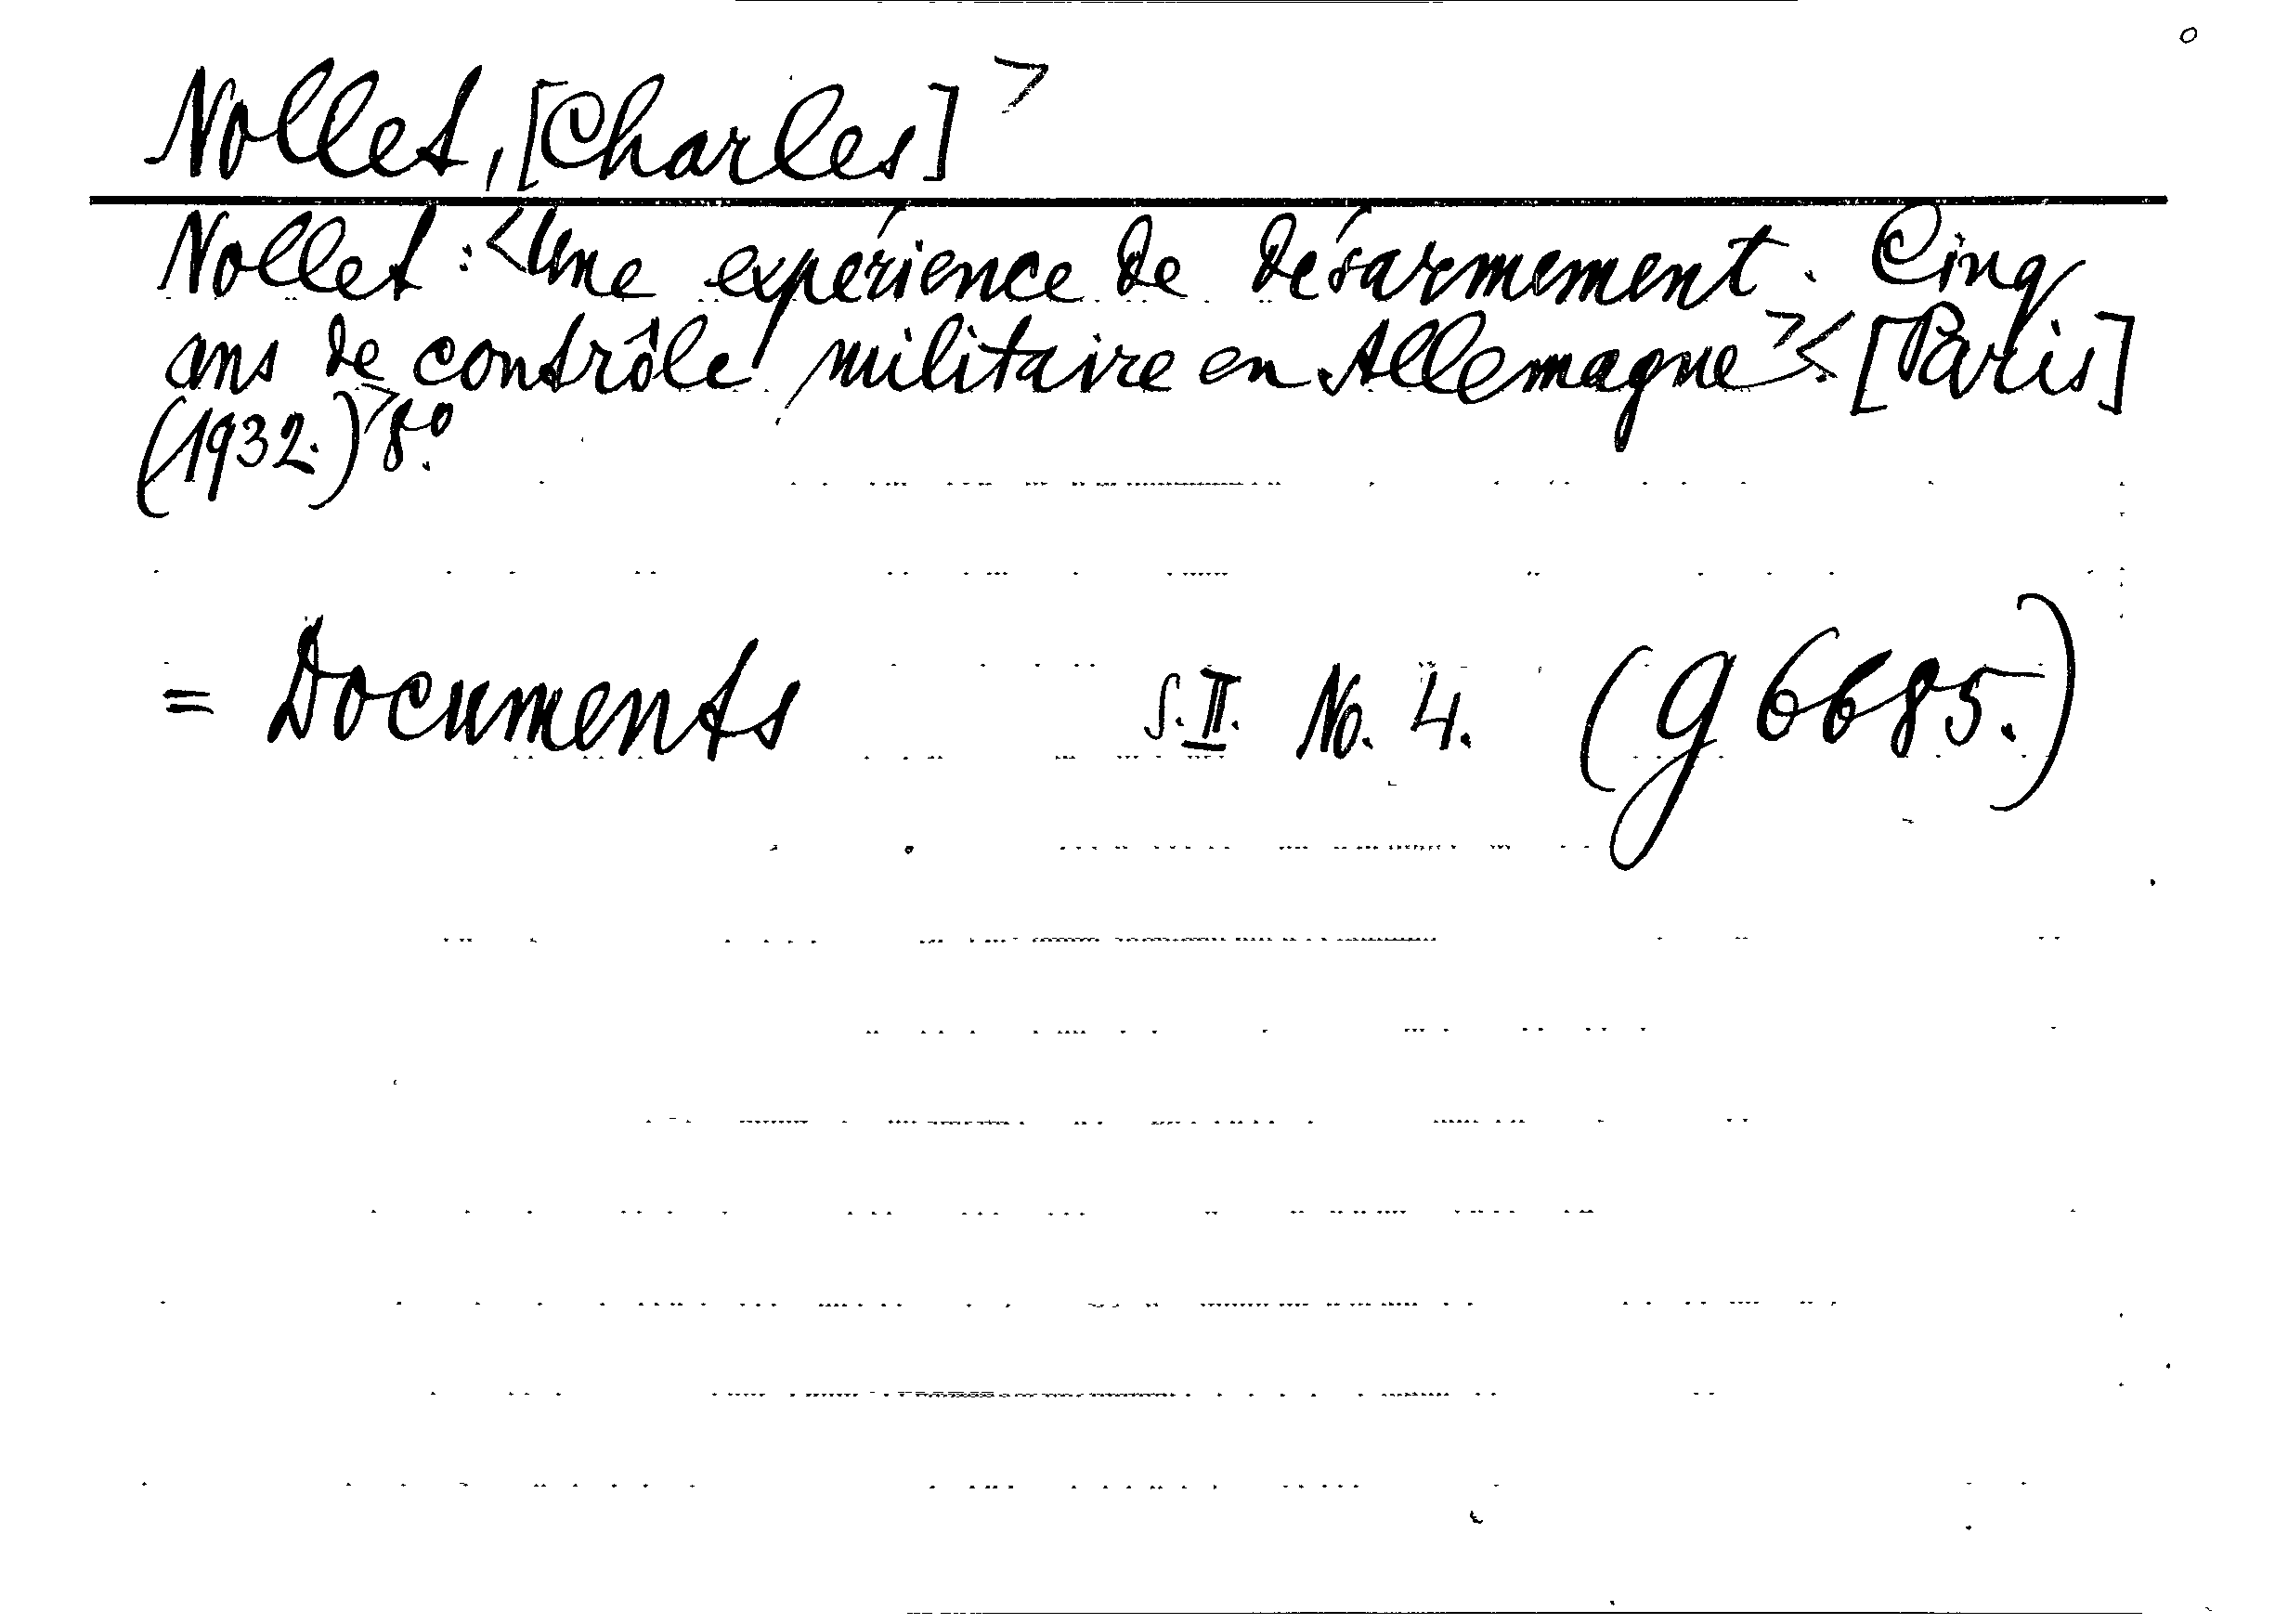 Nollet, [Charles]>
Nollet: <Une expérience de désarmement. Cinq
ans de contrôle militaire en Allemagne.>< [Paris]
(1932.)> 8°.
= Documents S. II. No. 4. (g 6685.)